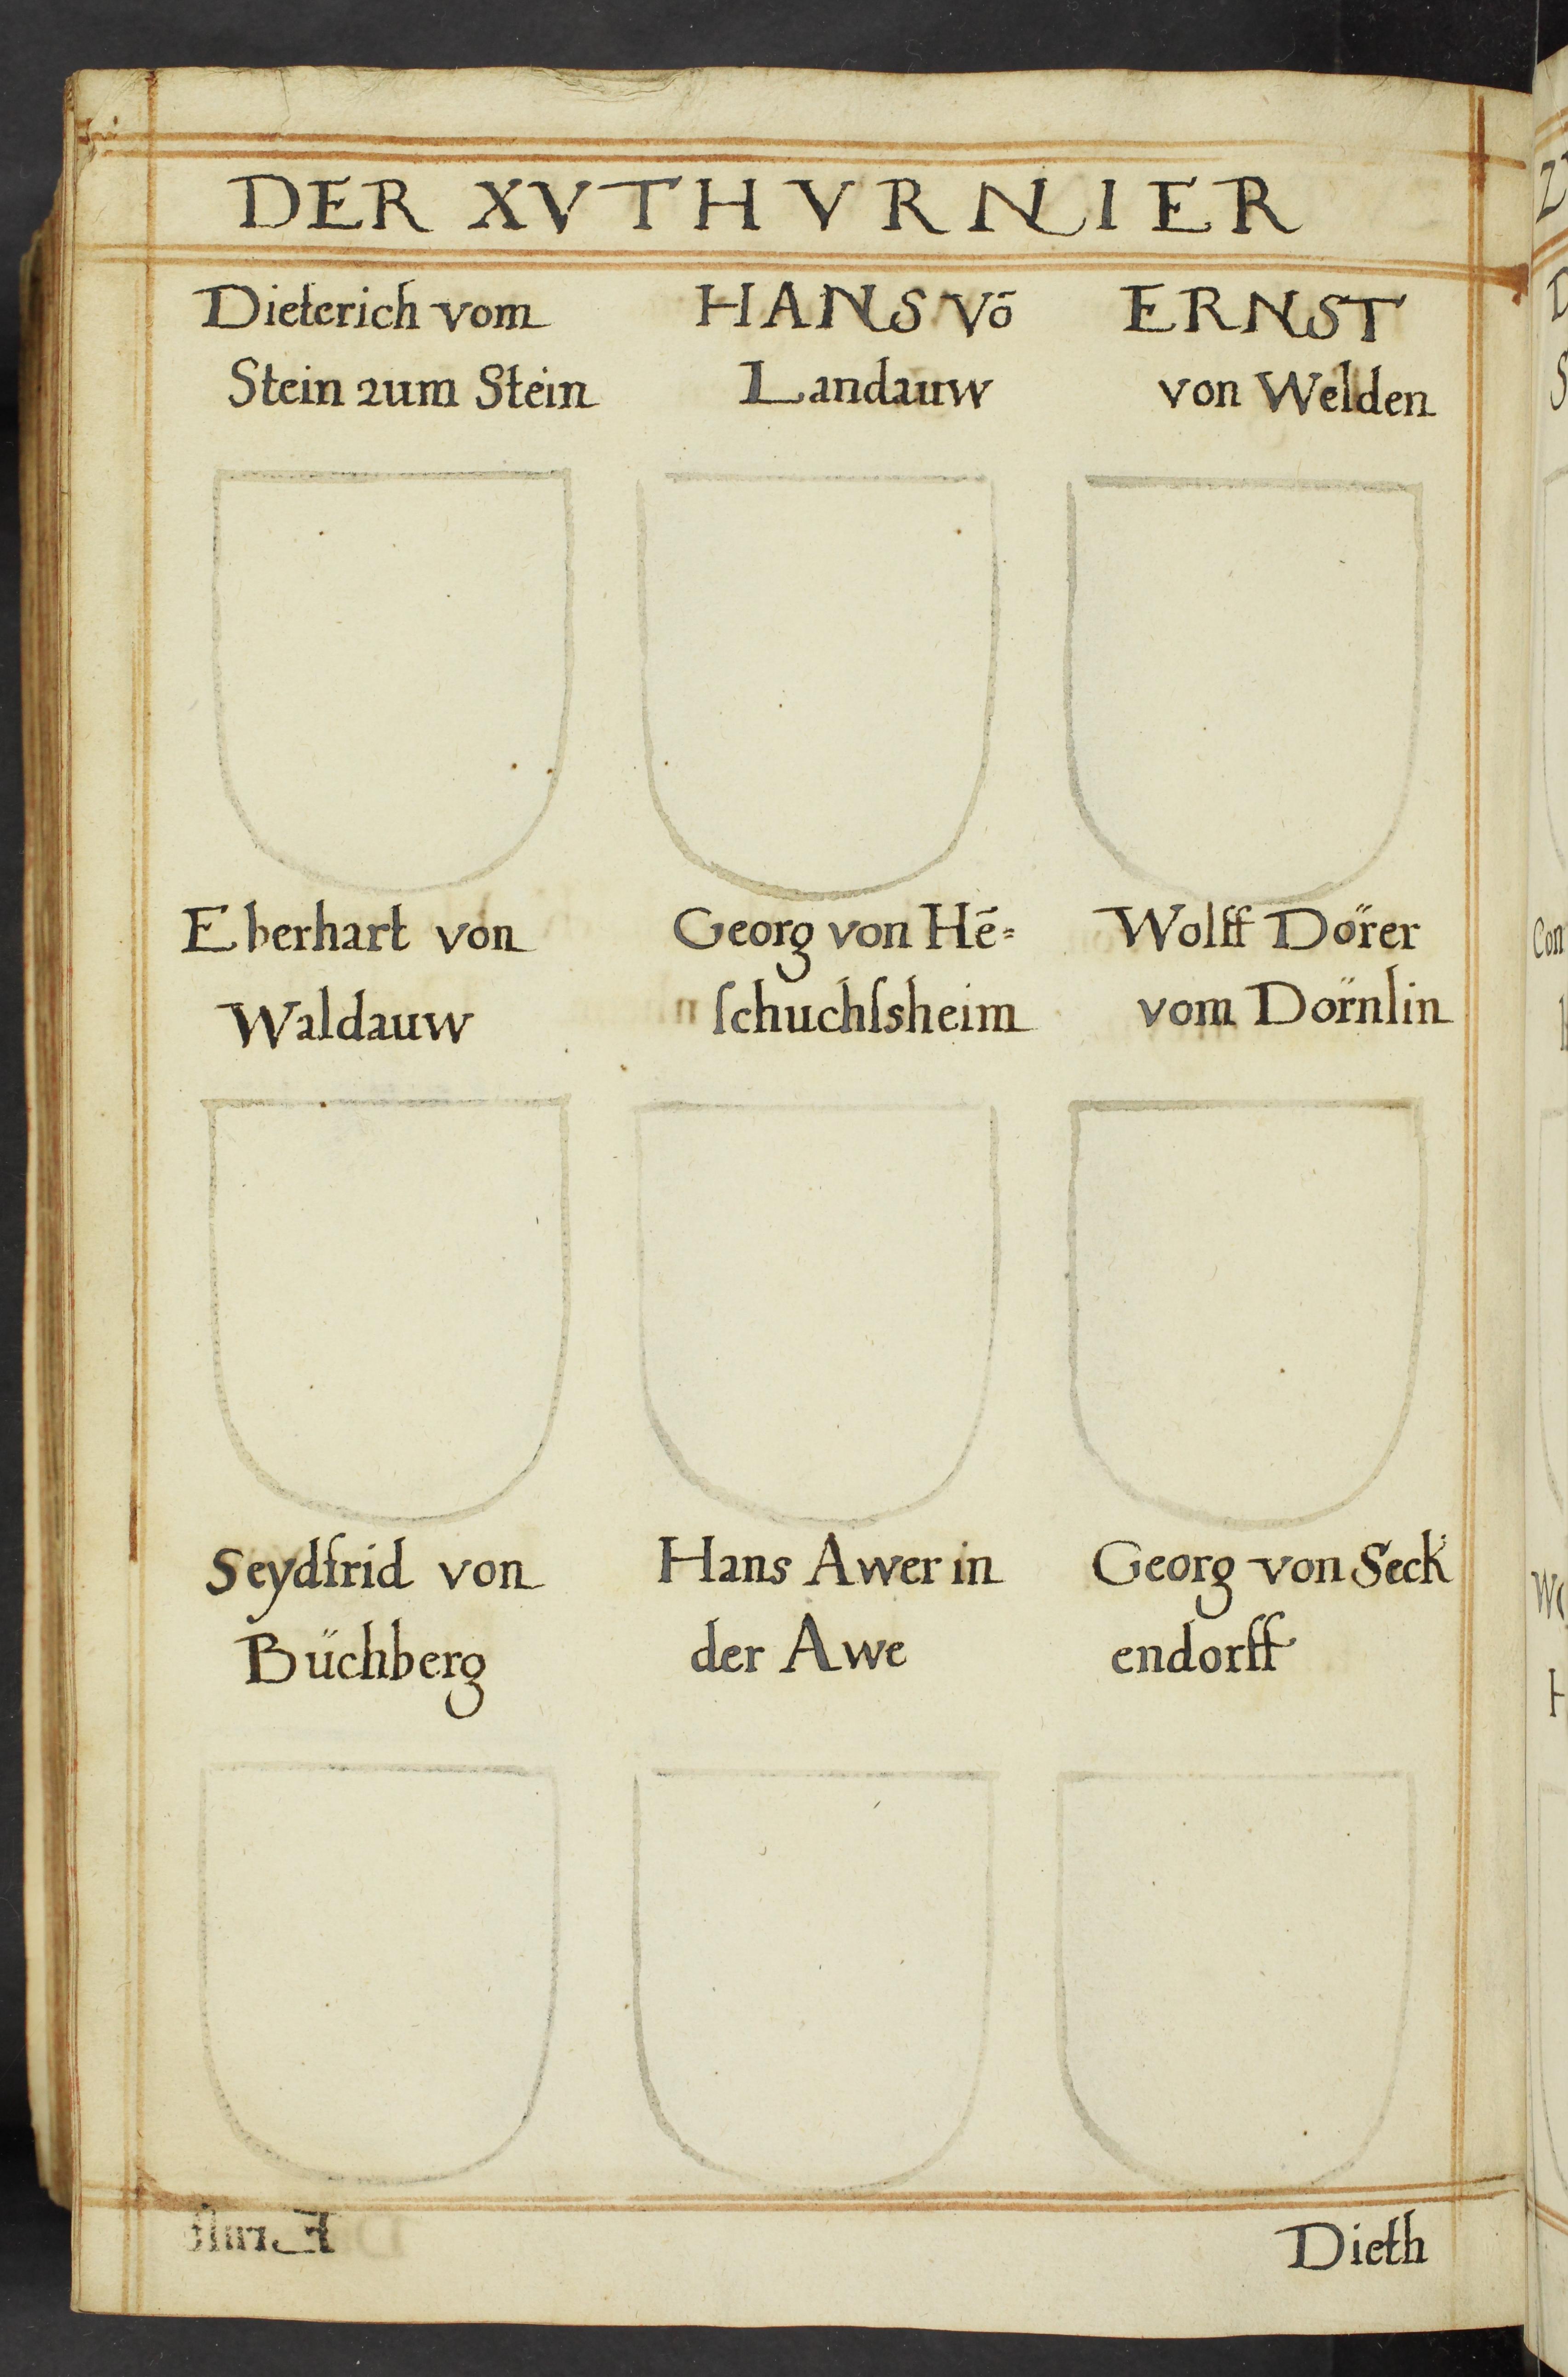 DER XV THVRNIER
Dieterich vom
Stein zum Stein
HANS Vō
Landauw
ERNST
von Welden
Eberhart von
Waldauw
Georg von Hē=
ſchuchſsheim
Wolff Dörer
vom Dörnlin
Seydfrid von
Büchberg
Hans Awer in
der Awe
Georg von Seck
endorff
Dieth